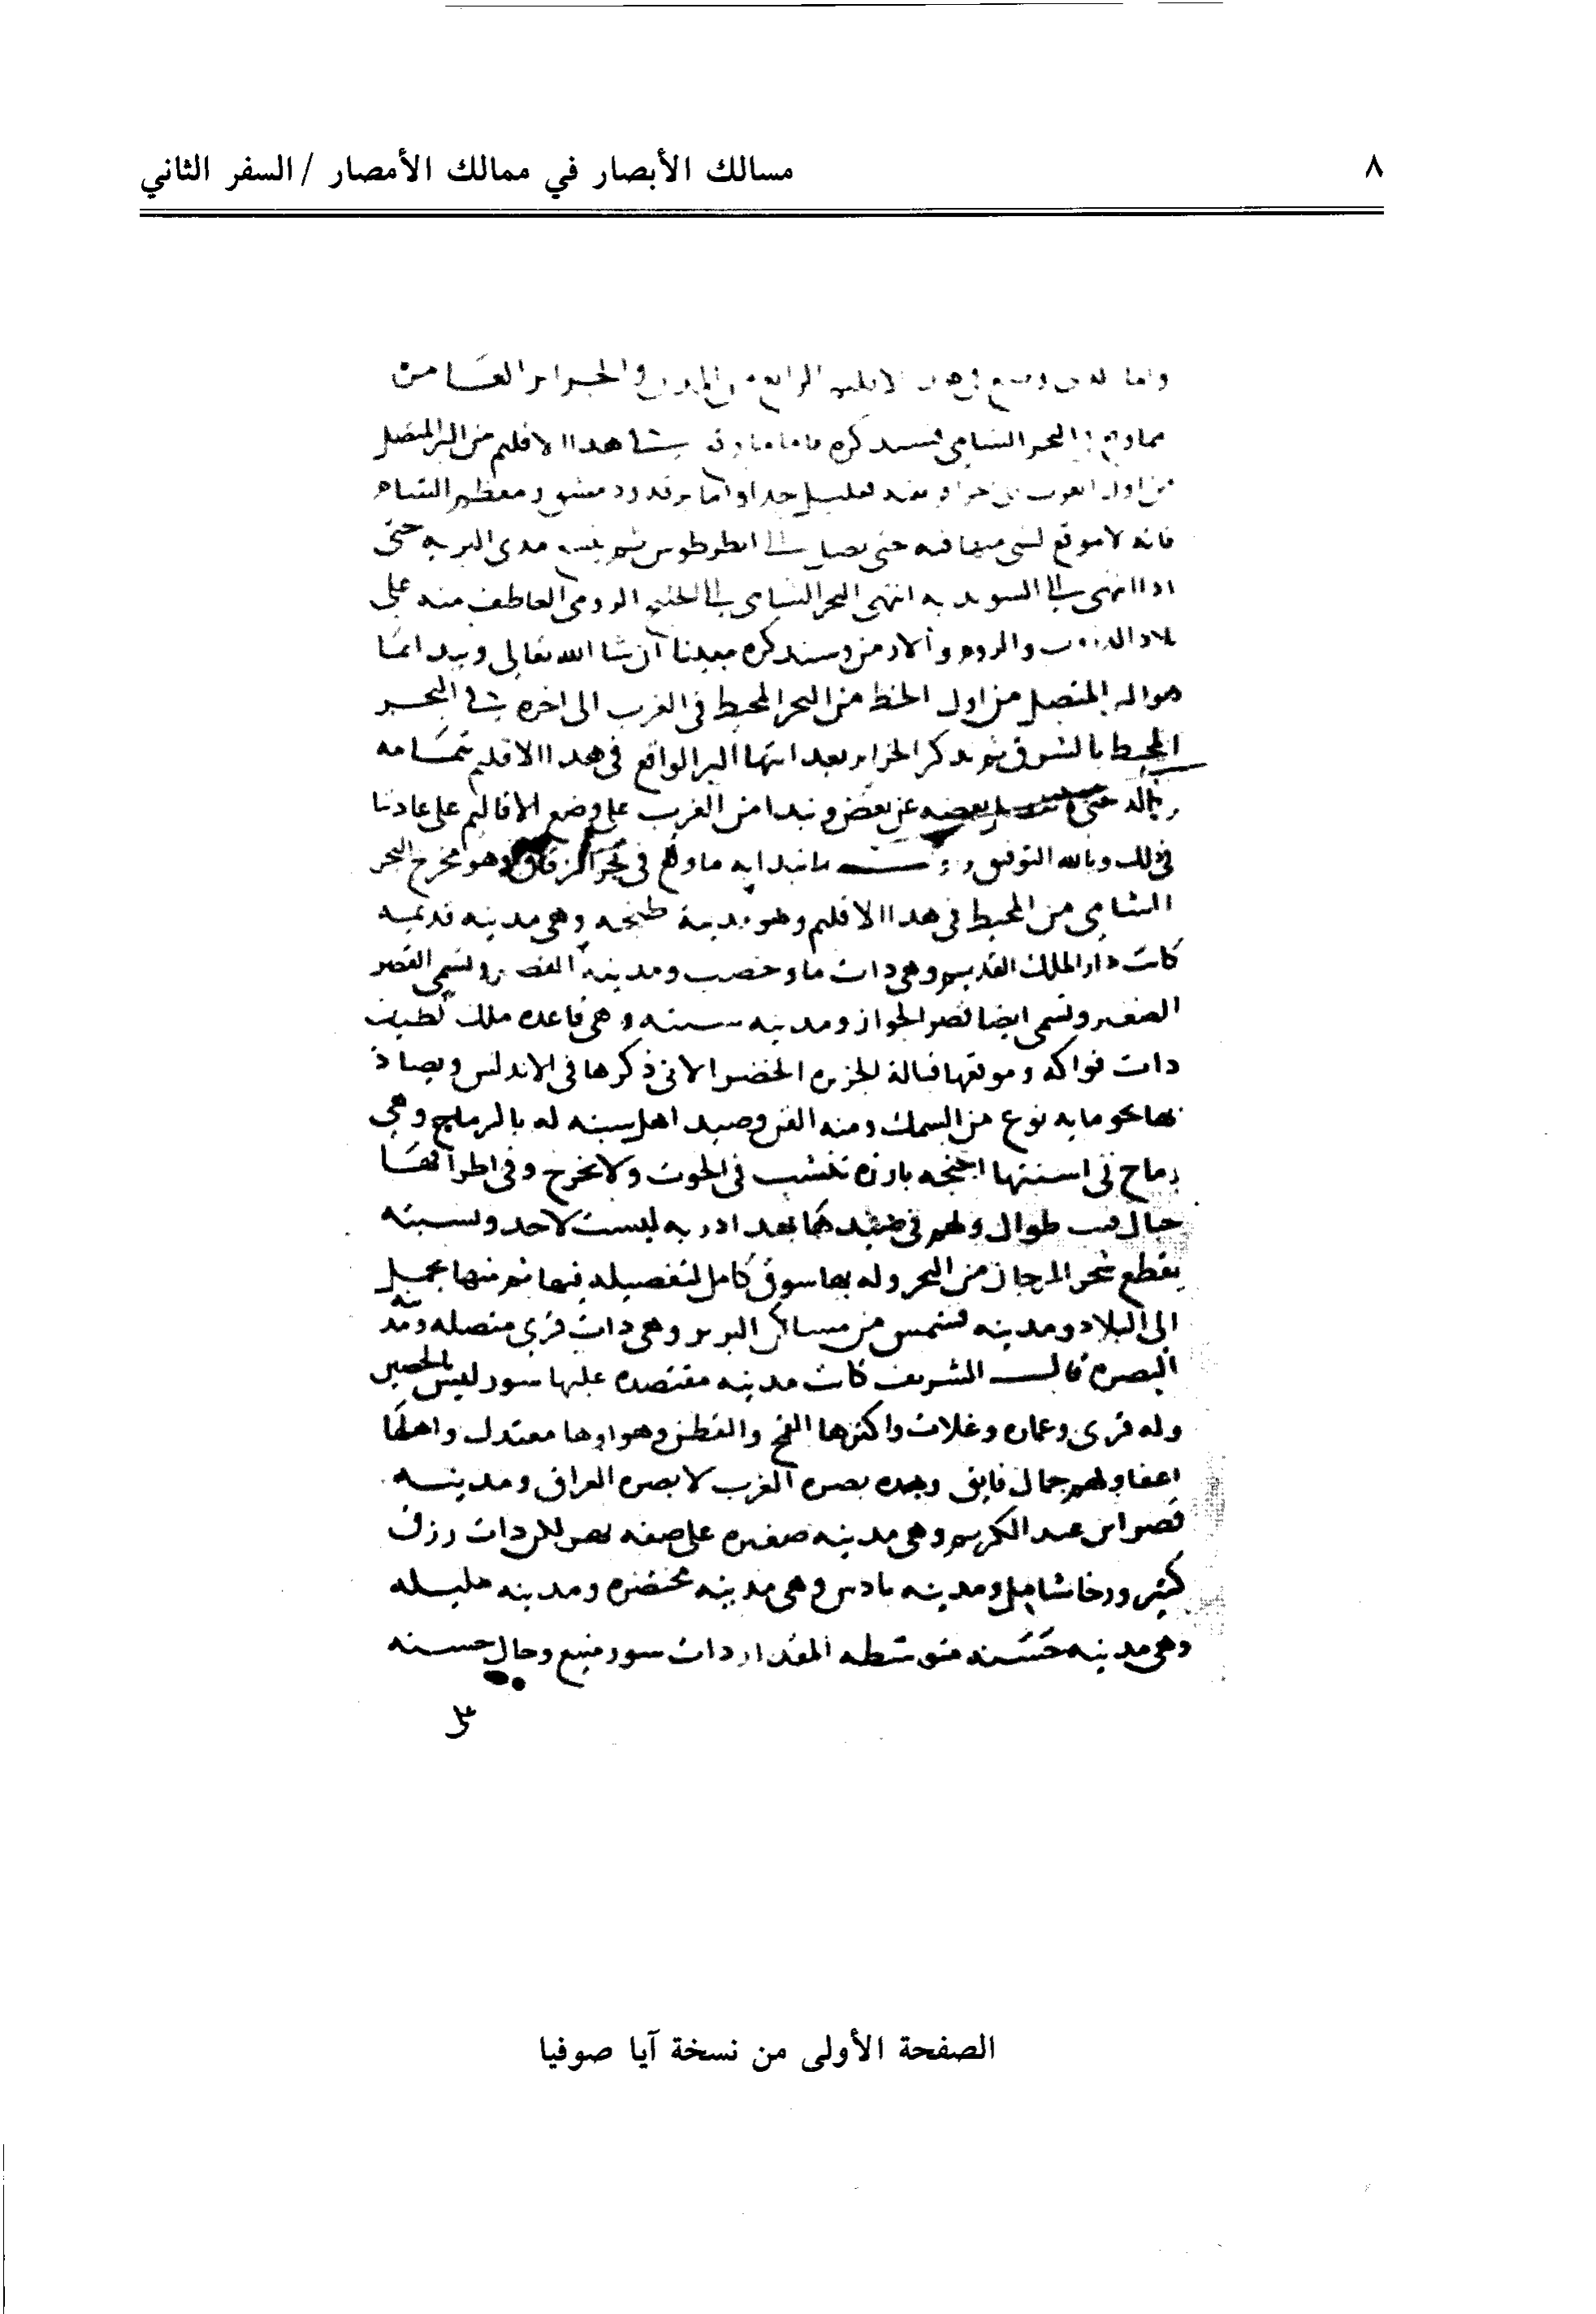 ٨
مسالك الأبصار في ممالك الأمصار / السفر الثاني
واما في الرابع من المدن والجزاير العامن
البحر الشامي فسنذكره هدا الاقليم من البر المتصل
من اول الغرب جدا واما دمشق ومعظم الشام
فانه لا موقع لشى منها فيه حتى يصل الى انطرطوس ثم مدى البريه حتى
ادا انتهى الى السويديه انتهى البحر الشامى الى الخليج الرومى العاطف منه على
بلاد والروم والارمن وسنذكره بعدنا ان شا الله تعالى
المتصل من اول الخط من البحر المحيط فى الغرب الى اخره فى البحر
المحيط بالشرق ثم نذكر الجزاير بعد انتها البر الواقع فى هدا الاقليم بتمامه
حتى بعضه عن بعض ونبدا من الغرب على وضع الاقاليم على عادتنا
فى ذلك وبالله التوفيق ما نبدا به ما وقع فى بحر الزقاق وهو مخرج البحر
الشامى من المحيط فى هدا الاقليم وهو مدينة طنجه وهى مدينه قديميه
كانت دار الملك القديم وهى دات ما وخصب ومدينه القصر وتسمى القصر
الصغير وتسمى ايضا قصر الجواز ومدينه سبته وهى قاعده ملك لطيف
دات فواكه وموقعها قبالة الجزيره الخضرا الاتى ذكرها فى الاندلس ويصاد
بها نحو مايه نوع من السمك ومنه التن وصيد اهل سبته له بالرماح وهى
رماح فى اسنتها اجنحه بارزه تنشب فى الحوت ولا تخرج وفى اطرافها
حبال قنب طوال ولهم فى صيدها بعد ادربه ليست لاحد وبسبته
يقطع شجر المرجان من البحر وله بها سوق كامل لتفصيله فيها ثم منها يحمل
الى البلاد ومدينه تشمس من مساكن البربر وهى دات قرى متصله ومدينه
البصره قال الشريف كانت مدينه مقتصده عليها سور ليس بالحصين
وله قرى وعماره وغلات واكثرها القمح والقطن وهواوها معتدل واهلها
اعفا ولهم جمال فايق وهده بصره الغرب لا بصره العراق ومدينه
قصر ابن عبد الكريم وهى مدينه صغيره على ضفه نهر دات رزق
كثير ورخا شامل ومدينه بادس وهى مدينه متحضره ومدينه مليله
وهى مدينه حسنه متوسطه المقدار دات سور منيع وحال حسنه
الصفحة الأولى من نسخة آيا صوفيا